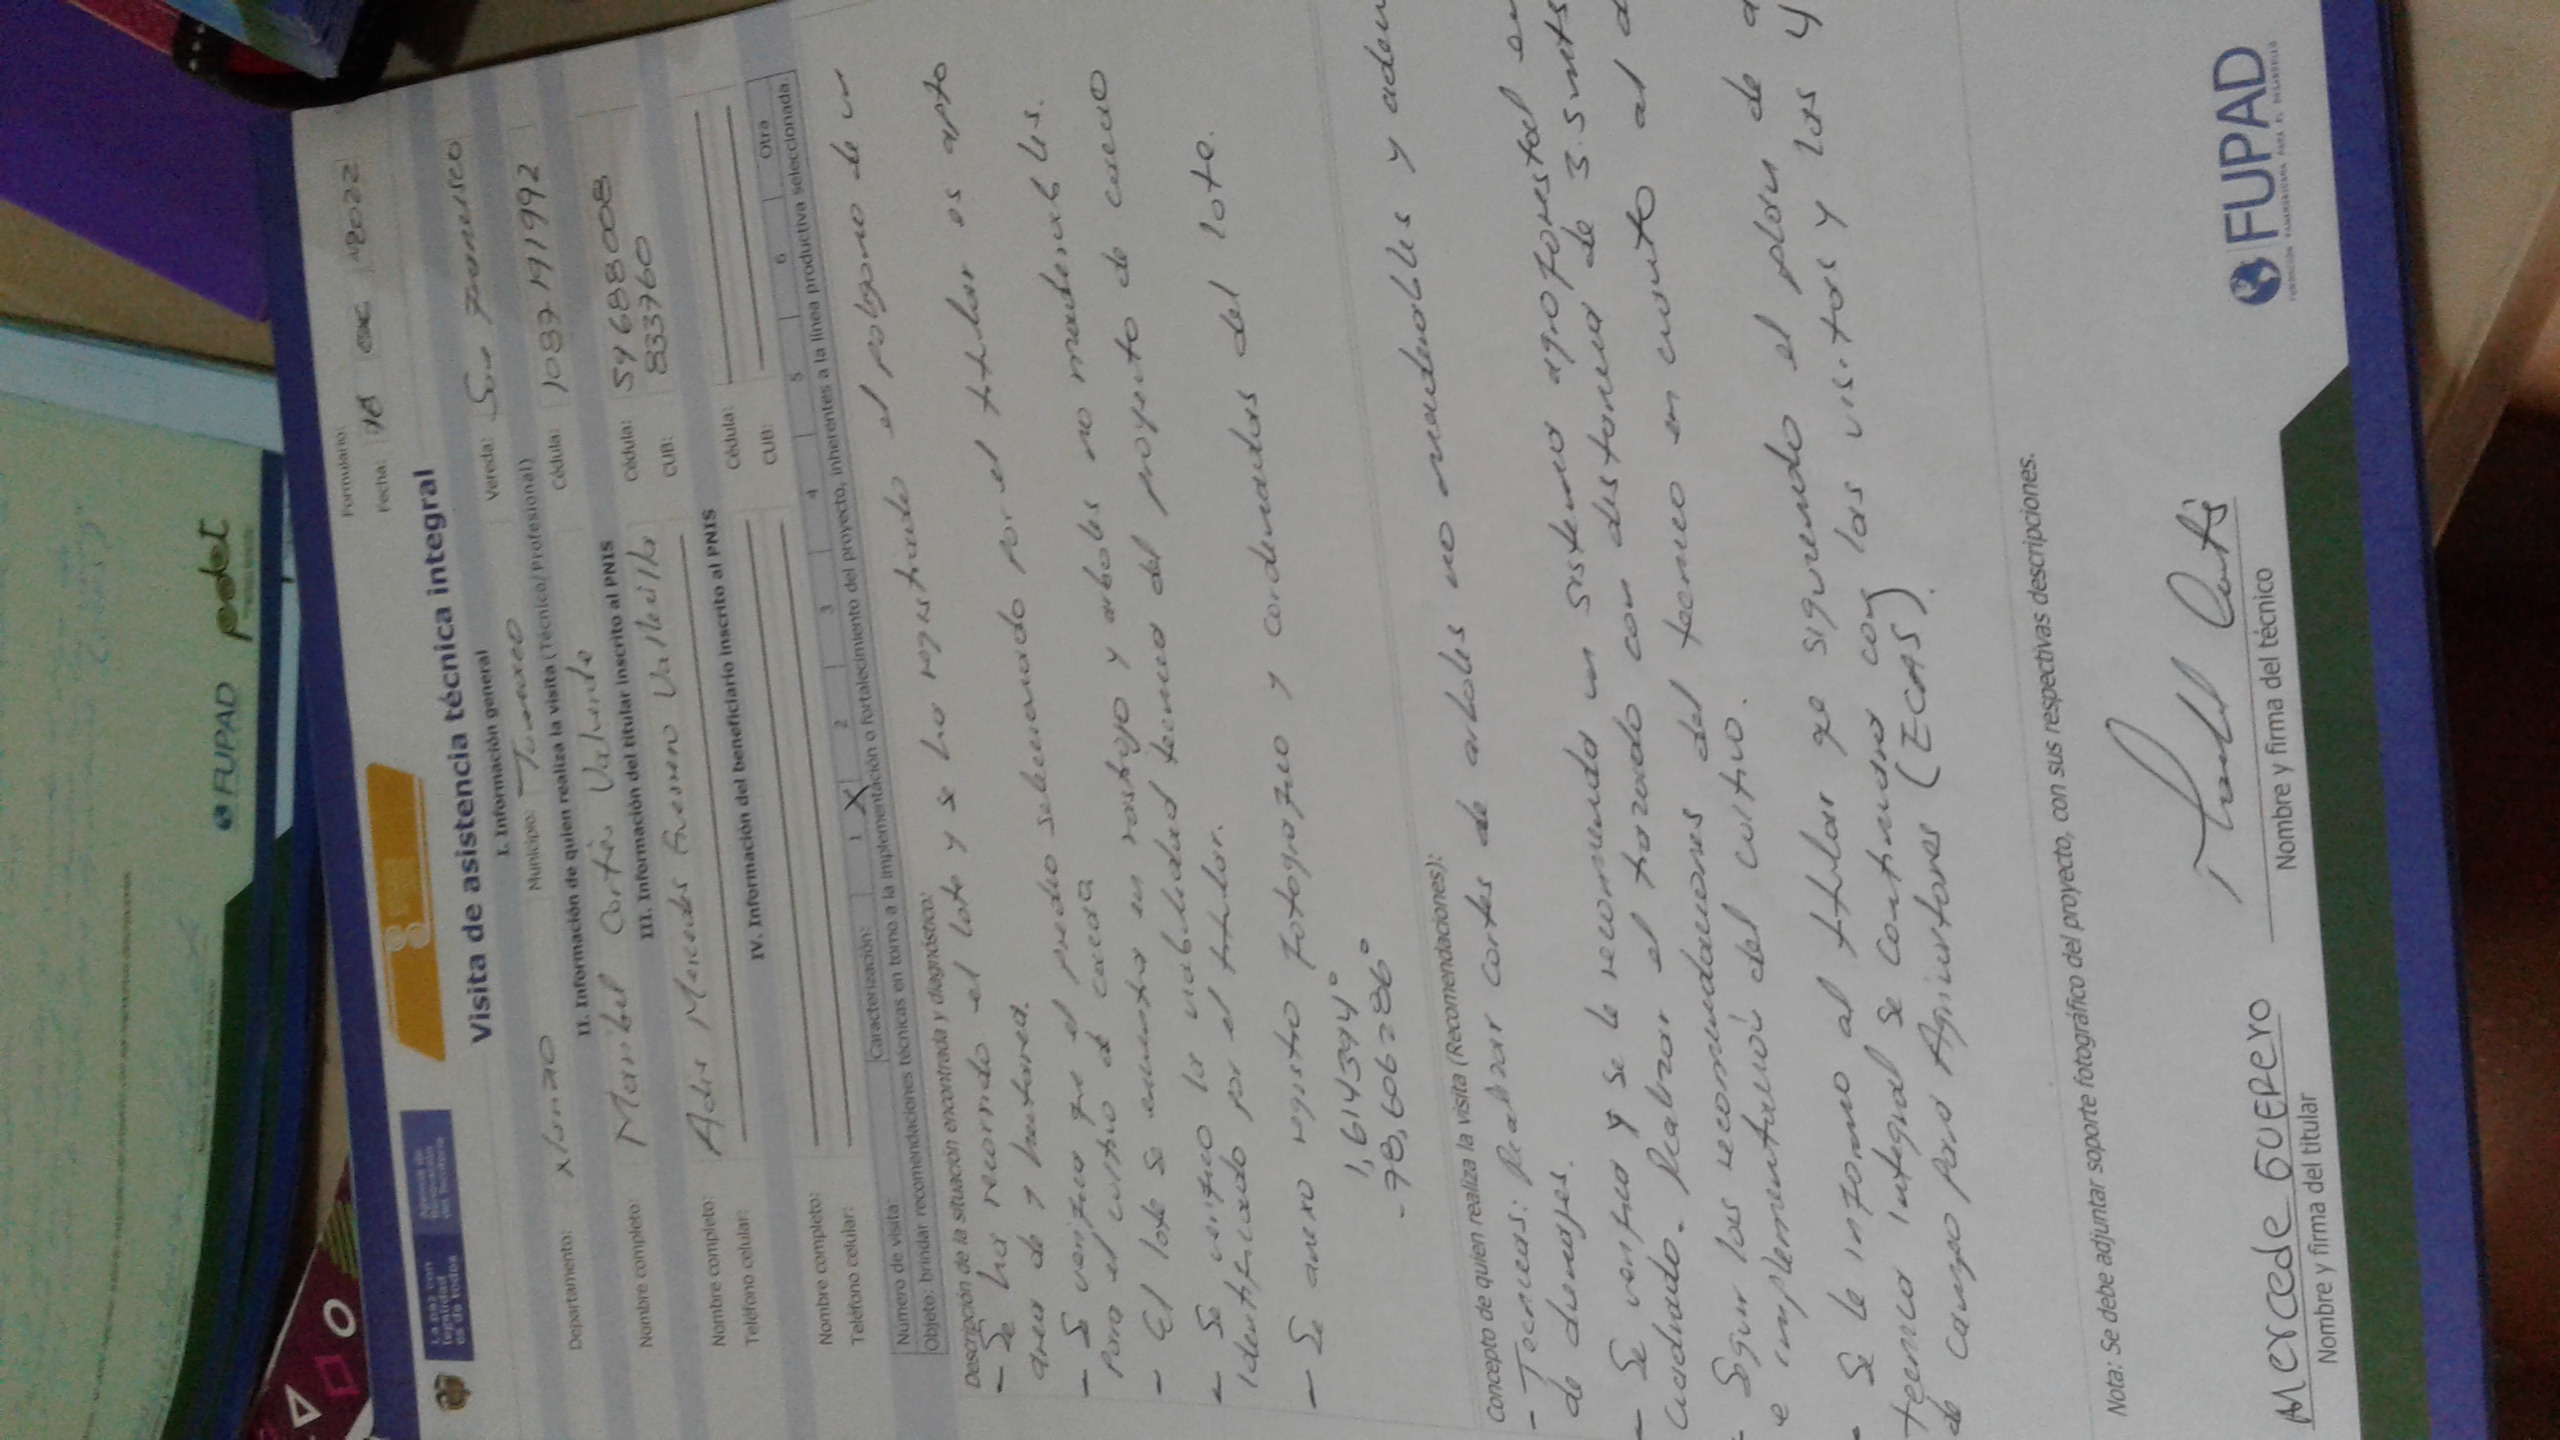 La paz con
legalidad
es de todos
Agencia de
Renovación
del Territorio
Formulario:
Fecha: 18 2022
Visita de asistencia técnica integral
I. Información general
Departamento: Nariño Municipio: Tumaco Vereda: San Francisco
II. Información de quien realiza la visita (Técnico/Profesional)
Nombre completo: Maribel Cortés Valverde Cédula: 1087191992
III. Información del titular inscrito al PNIS
Nombre completo: Adis Mercedes Guerrero Vallecilla Cédula: 59688008
Teléfono celular: CUB: 833760
IV. Información del beneficiario inscrito al PNIS
Nombre completo: Cédula:
Teléfono celular: CUB:
Número de visita: Caracterización: 1 X 2 3 4 5 6 Otra
Objeto: brindar recomendaciones técnicas en torno a la implementación o fortalecimiento del proyecto, inherentes a la línea productiva seleccionada.
Descripción de la situación encontrada y diagnóstico:
- Se ha recorrido el lote y se ha registrado el poligono de un
area de 1 hectarea.
- Se verifica que el predio seleccionado por el titular es apto
para el cultivo de cacao
- El lote se encuentra en rastrojo y arboles no maderables.
- Se verifico la viabilidad tecnica del proyecto de cacao
identificado por el titular.
- Se anexo registro fotografico y cordenadas del lote.
1,614394°
-78,606286°
Concepto de quien realiza la visita (Recomendaciones):
- Tecnicas: Realizar cortes de arboles no maderables y adecu
de drenajes.
- Se verifica y se le recomienda un sistema agroforestal en
cuadrado. Realizar el trazado con distancia de 3.5 mts
- Seguir las recomendaciones del tecnico en cuanto al
e implementación del cultivo.
- Se le informo al titular que siguiendo el plan de a
tecnica integral se continuara con las visitas y las 4
de campo para Agricultores (ECAS).
Nota: Se debe adjuntar soporte fotográfico del proyecto, con sus respectivas descripciones.
Mercede GUERrero
Nombre y firma del titular
Nombre y firma del técnico
FUPAD
FUNDACIÓN PANAMERICANA PARA EL DESARROLLO
FUPAD
pdet